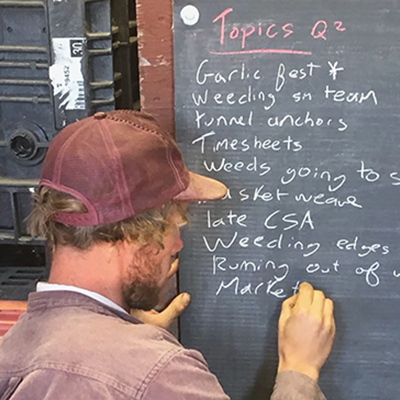 Topics Q2
Garlic fest *
Weeding sm team
tunnel anchors
Timesheets
Weeds going to s
basket weave
late CSA
Weeding edges
Runing out of
Market